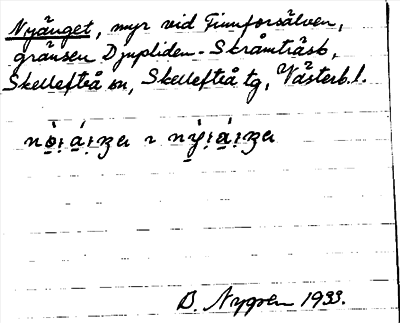 Nyänget, myr vid Finnforsälven,
gränsen Djupliden - Skråmträsk,
Skellefteå sn, Skellefteå tg, Västerb. l.
B. Nygren 1933.